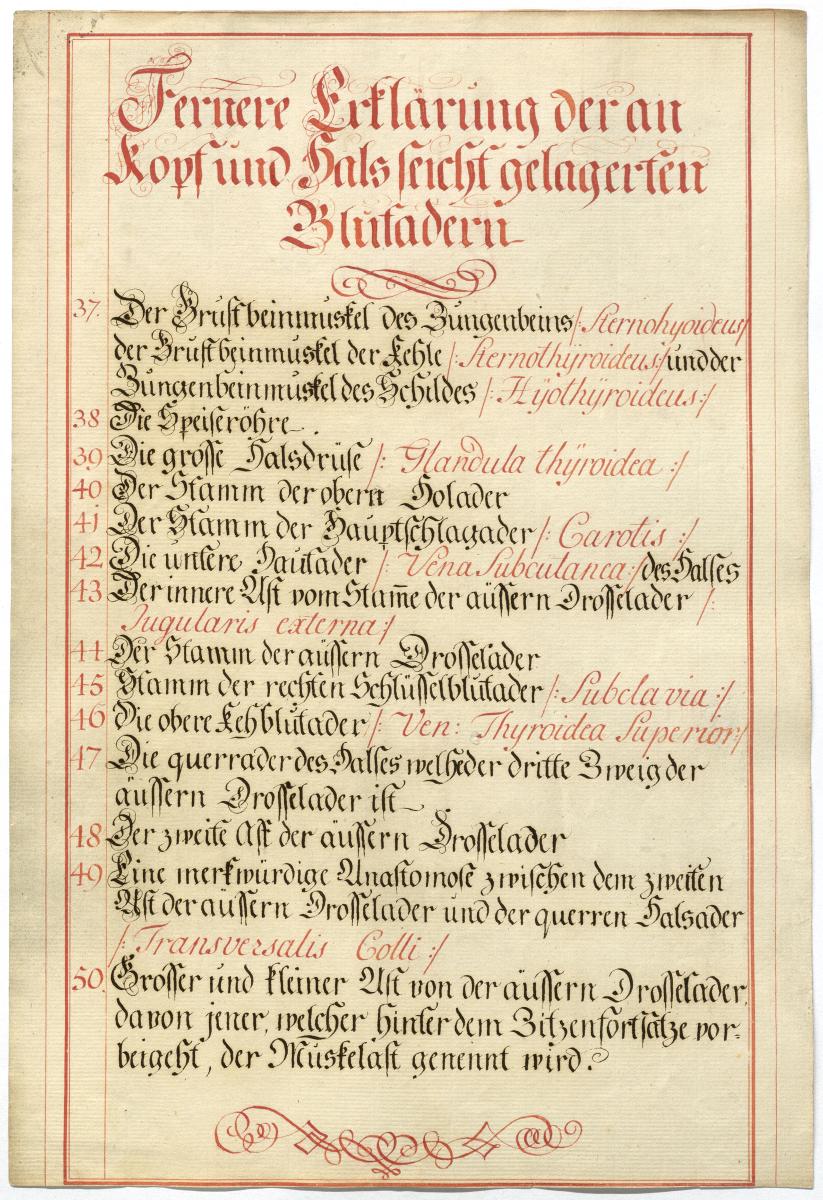 Fernere Erklärung der an
Kopf und Hals seicht gelagerten
Blutadern
37. Der Brustbeinmuskel des Zungenbeins /: Sternohyoideus :/
der Brustbeinmuskel der Kehle /: Sternothÿroideus :/ und der
Zungenbeinmuskel des Schildes /: Hÿothÿroideus :/
38 Die Speiseröhre .
39 Die grosse Halsdrüse /: Glandula thÿroidea :/
40 Der Stamm der obern Holader
41 Der Stamm der Hauptschlagader /: Carotis :/
42 Die untere Hautader /: Vena Subcutanea :/ des Halses
43 Der innere Ast vom Stam̅e der äussern Drosselader /:
Jugularis externa :/
44 Der Stamm der äussern Drosselader
45 Stamm der rechten Schlüsselblutader /: Subclavia :/
46 Die obere Kehblutader /: Ven: Thyroidea Superior :/
47 Die querrader des Halses welheder dritte Zweig der
äussern Drosselader ist .
48 Der zweite Ast der äussern Drosselader
49 Eine merkwürdige Anastomose zwischen dem zweiten
Ast der äussern Drosselader und der querren Halsader
/: Transversalis Colli :/
50. Grosser und kleiner Ast von der äussern Drosselader,
davon jener, welcher hinter dem Zitzenfortsatze vor-
beigeht, der Muskelast genennt wird.